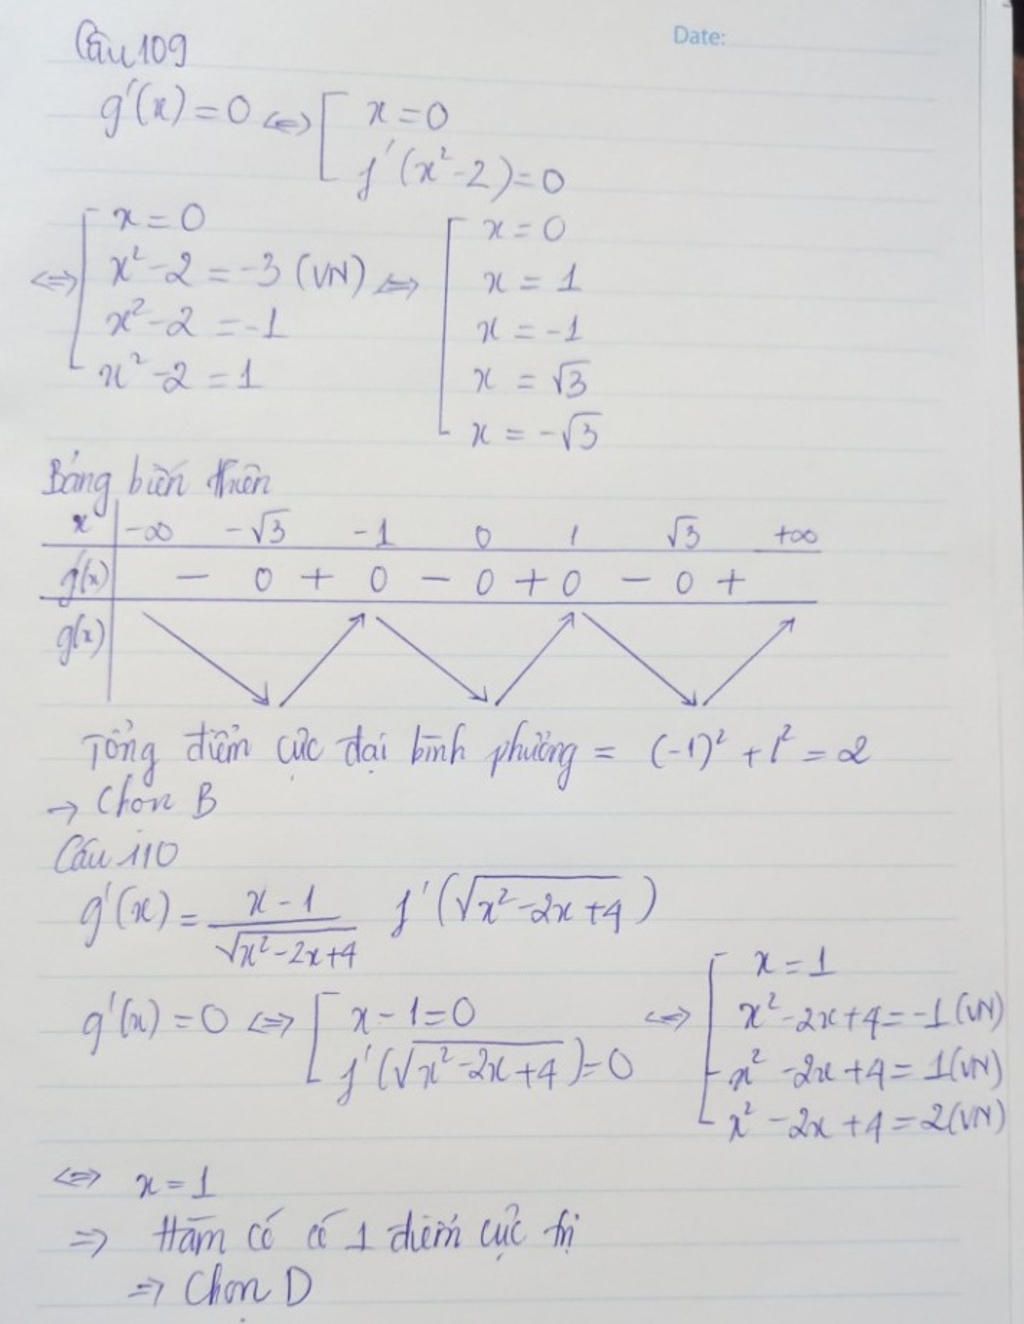 Câu 109
Date:
g'(x) = 0 <=> [ x = 0
f'(x² - 2) = 0
<=> [ x = 0
x² - 2 = -3 (VN)
x² - 2 = -1
x² - 2 = 1
<=> [ x = 0
x = 1
x = -1
x = √3
x = -√3
Bảng biến thiên
x | -∞ -√3 -1 0 1 √3 +∞
g'(x) | - 0 + 0 - 0 + 0 - 0 +
g(x) | ↘ ↗ ↘ ↗ ↘ ↗
Tổng điểm cực đại bình phương = (-1)² + 1² = 2
→ Chọn B
Câu 110
g'(x) = (x - 1)/√(x² - 2x + 4) f'(√(x² - 2x + 4))
g'(x) = 0 <=> [ x - 1 = 0
f'(√(x² - 2x + 4)) = 0
<=> [ x = 1
x² - 2x + 4 = -1 (VN)
x² - 2x + 4 = 1 (VN)
x² - 2x + 4 = 2 (VN)
<=> x = 1
=> Hàm có có 1 điểm cực trị
=> Chọn D